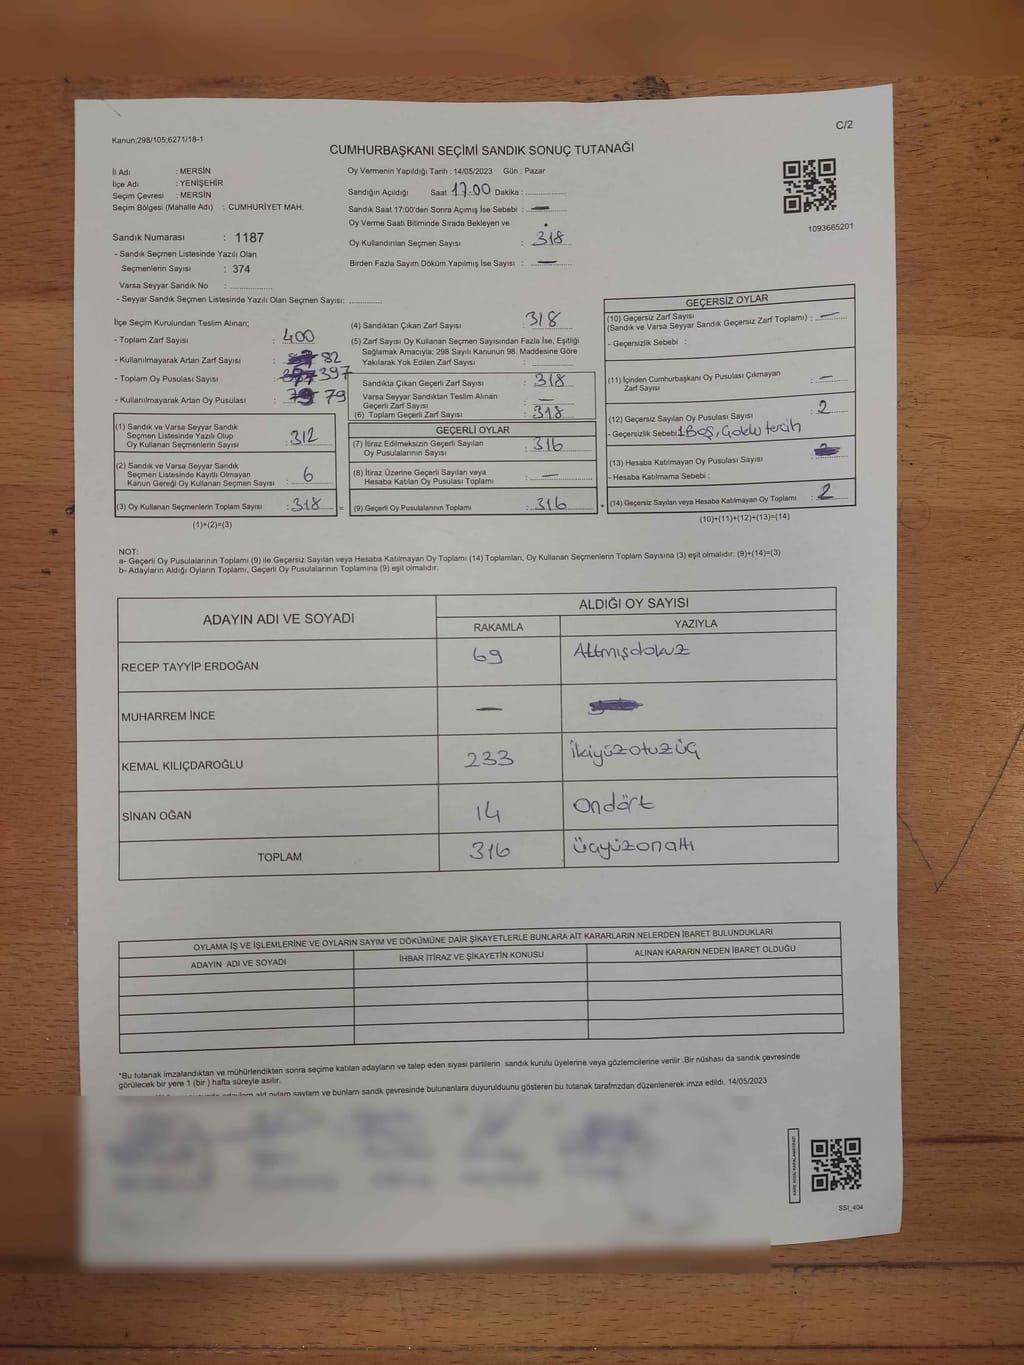 Kanun;298/105;6271/18-1
C/2
CUMHURBAŞKANI SEÇİMİ SANDIK SONUÇ TUTANAĞI
İl Adı : MERSİN
İlçe Adı : YENİŞEHİR
Seçim Çevresi : MERSİN
Seçim Bölgesi (Mahalle Adı) : CUMHURİYET MAH.
Sandık Numarası : 1187
- Sandık Seçmen Listesinde Yazılı Olan
Seçmenlerin Sayısı : 374
Varsa Seyyar Sandık No :
- Seyyar Sandık Seçmen Listesinde Yazılı Olan Seçmen Sayısı:
Oy Vermenin Yapıldığı Tarih : 14/05/2023 Gün : Pazar
Sandığın Açıldığı Saat 17.00 Dakika :
Sandık Saat 17:00'den Sonra Açımış İse Sebebi : —
Oy Verme Saati Bitiminde Sırada Bekleyen ve :
Oy Kullandırılan Seçmen Sayısı : 318
Birden Fazla Sayım Döküm Yapılmış İse Sayısı : —
1093665201
İlçe Seçim Kurulundan Teslim Alınan;
- Toplam Zarf Sayısı : 400
- Kullanılmayarak Artan Zarf Sayısı : 82
- Toplam Oy Pusulası Sayısı : 397
- Kullanılmayarak Artan Oy Pusulası : 79
(1) Sandık ve Varsa Seyyar Sandık
Seçmen Listesinde Yazılı Olup
Oy Kullanan Seçmenlerin Sayısı : 312
(2) Sandık ve Varsa Seyyar Sandık
Seçmen Listesinde Kayıtlı Olmayan
Kanun Gereği Oy Kullanan Seçmen Sayısı : 6
(3) Oy Kullanan Seçmenlerin Toplam Sayısı : 318
(1)+(2)=(3)
(4) Sandıktan Çıkan Zarf Sayısı : 318
(5) Zarf Sayısı Oy Kullanan Seçmen Sayısından Fazla İse, Eşitliği
Sağlamak Amacıyla; 298 Sayılı Kanunun 98. Maddesine Göre
Yakılarak Yok Edilen Zarf Sayısı :
Sandıkta Çıkan Geçerli Zarf Sayısı : 318
Varsa Seyyar Sandıktan Teslim Alınan
Geçerli Zarf Sayısı : —
(6) Toplam Geçerli Zarf Sayısı : 318
GEÇERLİ OYLAR
(7) İtiraz Edilmeksizin Geçerli Sayılan
Oy Pusulasının Sayısı : 316
(8) İtiraz Üzerine Geçerli Sayılan veya
Hesaba Katılan Oy Pusulası Toplamı : —
= (9) Geçerli Oy Pusulalarının Toplamı : 316
GEÇERSİZ OYLAR
(10) Geçersiz Zarf Sayısı
(Sandık ve Varsa Seyyar Sandık Geçersiz Zarf Toplamı) : —
- Geçersizlik Sebebi :
(11) İçinden Cumhurbaşkanı Oy Pusulası Çıkmayan
Zarf Sayısı : —
(12) Geçersiz Sayılan Oy Pusulası Sayısı : 2
- Geçersizlik Sebebi 1 Boş, Çoklu tercih
(13) Hesaba Katılmayan Oy Pusulası Sayısı :
- Hesaba Katılmama Sebebi :
+ (14) Geçersiz Sayılan veya Hesaba Katılmayan Oy Toplamı : 2
(10)+(11)+(12)+(13)=(14)
NOT:
a- Geçerli Oy Pusulalarının Toplamı (9) ile Geçersiz Sayılan veya Hesaba Katılmayan Oy Toplamı (14) Toplamları, Oy Kullanan Seçmenlerin Toplam Sayısına (3) eşit olmalıdır. (9)+(14)=(3)
b- Adayların Aldığı Oyların Toplamı, Geçerli Oy Pusulalarının Toplamına (9) eşit olmalıdır.
ADAYIN ADI VE SOYADI
ALDIĞI OY SAYISI
RAKAMLA YAZIYLA
RECEP TAYYİP ERDOĞAN 69 Altmışdokuz
MUHARREM İNCE —
KEMAL KILIÇDAROĞLU 233 İkiyüzotuzüç
SİNAN OĞAN 14 Ondört
TOPLAM 316 üçyüzonaltı
OYLAMA İŞ VE İŞLEMLERİNE VE OYLARIN SAYIM VE DÖKÜMÜNE DAİR ŞİKAYETLERLE BUNLARA AİT KARARLARIN NELERDEN İBARET BULUNDUKLARI
ADAYIN ADI VE SOYADI İHBAR İTİRAZ VE ŞİKAYETİN KONUSU ALINAN KARARIN NEDEN İBARET OLDUĞU
*Bu tutanak imzalandıktan ve mühürlendikten sonra seçime katılan adayların ve talep eden siyasi partilerin sandık kurulu üyelerine veya gözlemcilerine verilir .Bir nüshası da sandık çevresinde
görülecek bir yere 1 (bir ) hafta süreyle asılır.
ve bunların sandık çevresinde bulunanlara duyurulduunu gösteren bu tutanak tarafımzdan düzenlenerek imza edildi. 14/05/2023
SSI_404